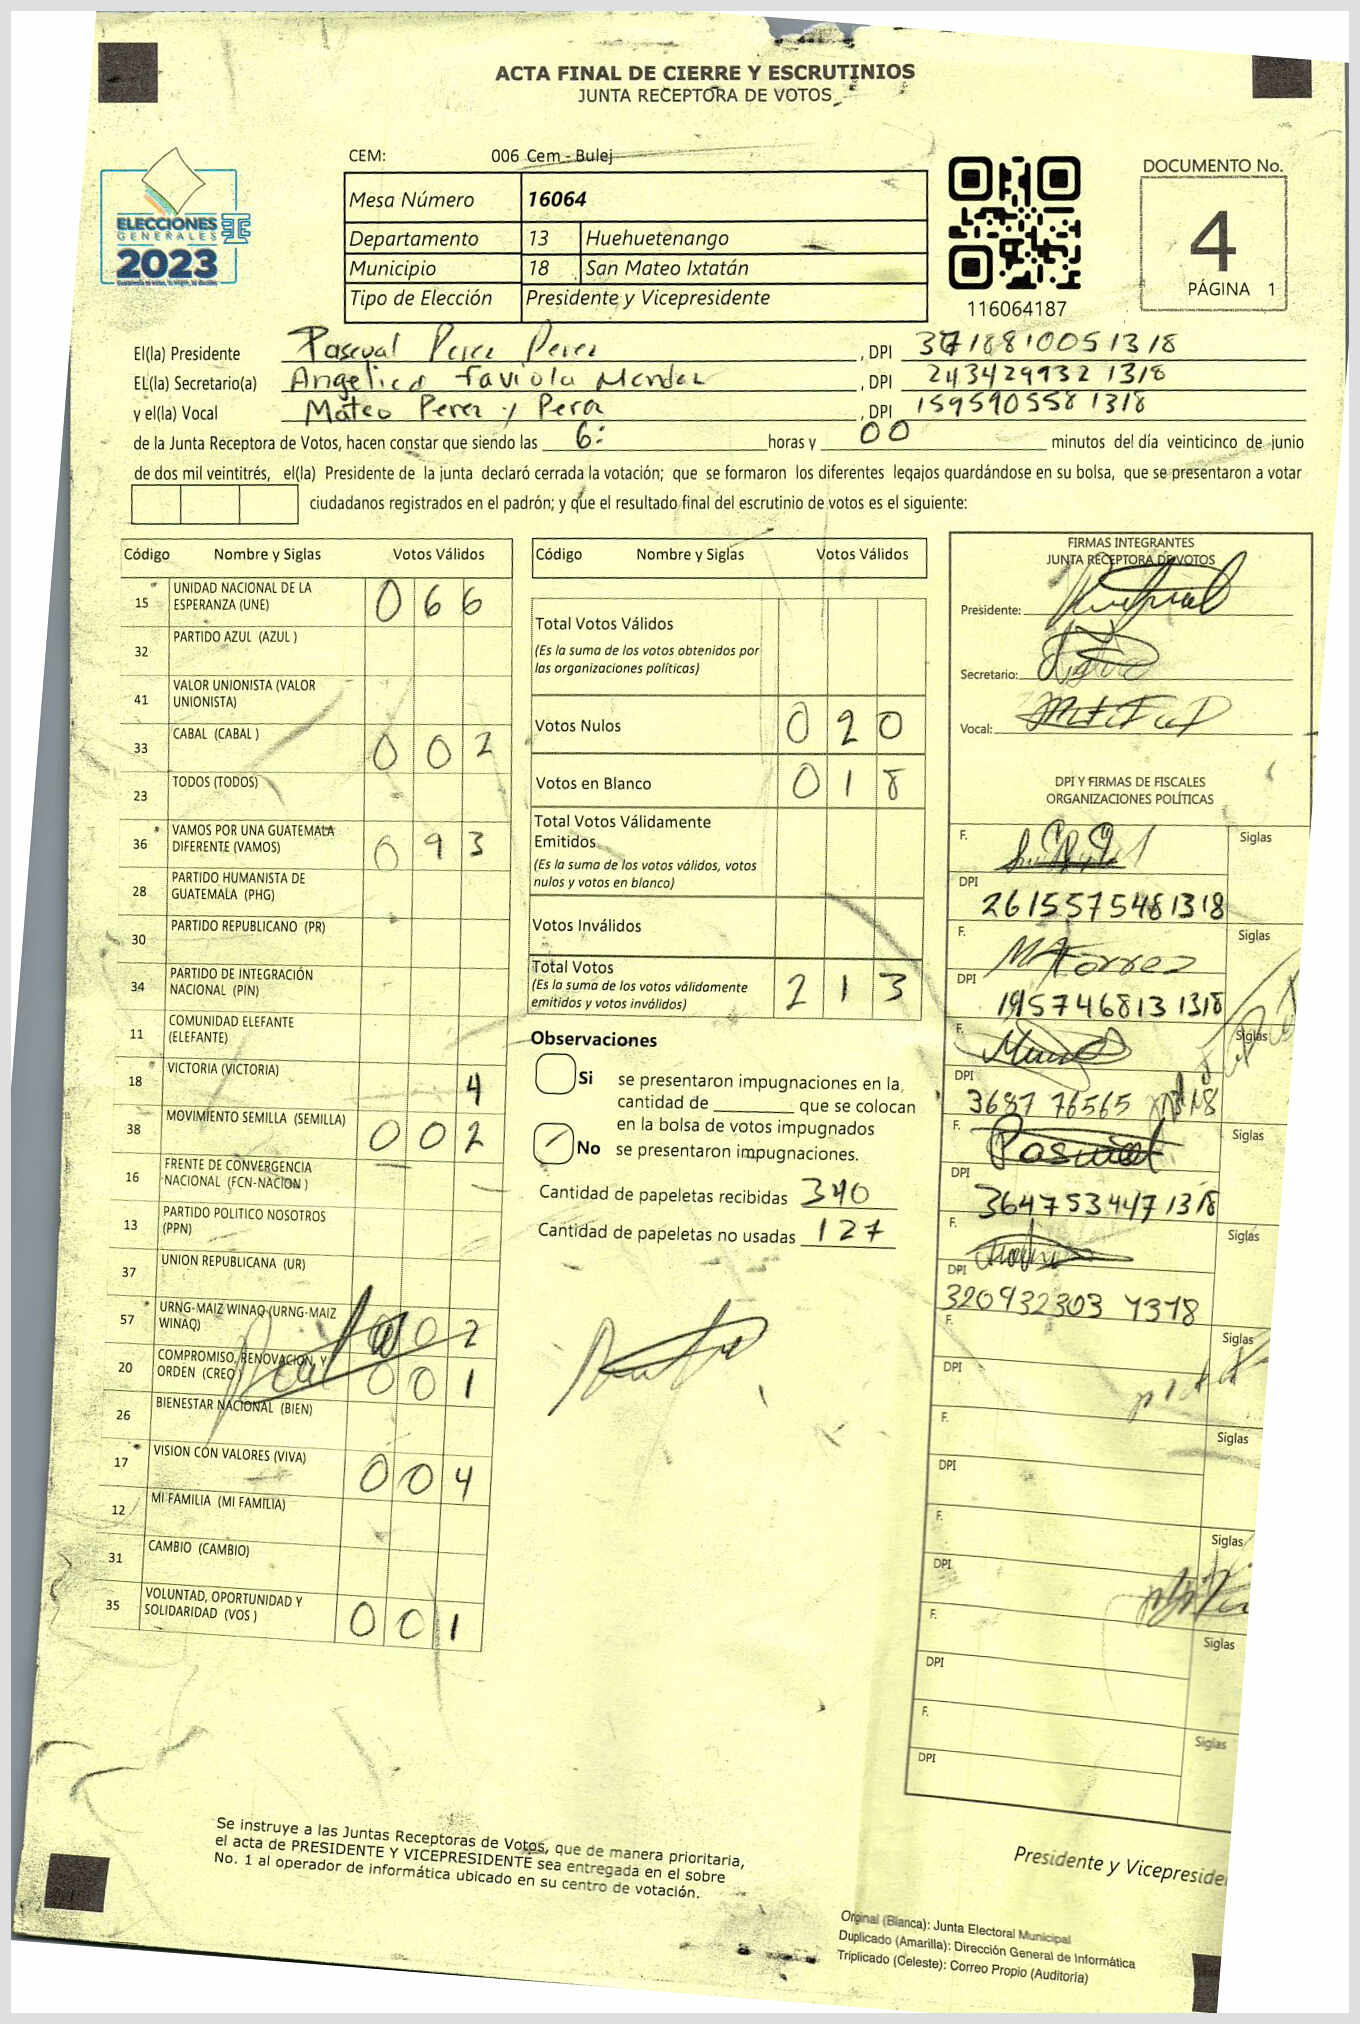 ACTA FINAL DE CIERRE Y ESCRUTINIOS
JUNTA RECEPTORA DE VOTOS
CEM: 006 Cem - Bulej
ELECCIONES
GENERALES
2023
Mesa Número 16064
Departamento 13 Huehuetenango
Municipio 18 San Mateo Ixtatán
Tipo de Elección Presidente y Vicepresidente
116064187
DOCUMENTO No.
4
PÁGINA 1
El(la) Presidente Pascual Perez Perez, DPI
EL(la) Secretario(a) Angelica Faviola Mendez, DPI 243429932 1318
y el(la) Vocal Mateo Perez y Perez, DPI 159590558 1318
de la Junta Receptora de Votos, hacen constar que siendo las 6: horas y 00 minutos del día veinticinco de junio
de dos mil veintitrés, el(la) Presidente de la junta declaró cerrada la votación; que se formaron los diferentes legajos guardándose en su bolsa, que se presentaron a votar
ciudadanos registrados en el padrón; y que el resultado final del escrutinio de votos es el siguiente:
Código Nombre y Siglas Votos Válidos
15 UNIDAD NACIONAL DE LA ESPERANZA (UNE) 066
32 PARTIDO AZUL (AZUL )
41 VALOR UNIONISTA (VALOR UNIONISTA)
33 CABAL (CABAL ) 002
23 TODOS (TODOS)
36 VAMOS POR UNA GUATEMALA DIFERENTE (VAMOS) 093
28 PARTIDO HUMANISTA DE GUATEMALA (PHG)
30 PARTIDO REPUBLICANO (PR)
34 PARTIDO DE INTEGRACIÓN NACIONAL (PIN)
11 COMUNIDAD ELEFANTE (ELEFANTE)
18 VICTORIA (VICTORIA) 4
38 MOVIMIENTO SEMILLA (SEMILLA) 002
16 FRENTE DE CONVERGENCIA NACIONAL (FCN-NACION )
13 PARTIDO POLITICO NOSOTROS (PPN)
37 UNION REPUBLICANA (UR)
57 URNG-MAIZ WINAQ (URNG-MAIZ WINAQ) 002
20 COMPROMISO, RENOVACION, Y ORDEN (CREO) 001
26 BIENESTAR NACIONAL (BIEN)
17 VISION CON VALORES (VIVA) 004
12 MI FAMILIA (MI FAMILIA)
31 CAMBIO (CAMBIO)
35 VOLUNTAD, OPORTUNIDAD Y SOLIDARIDAD (VOS ) 001
Código Nombre y Siglas Votos Válidos
Total Votos Válidos
(Es la suma de los votos obtenidos por
las organizaciones políticas)
Votos Nulos 020
Votos en Blanco 018
Total Votos Válidamente
Emitidos
(Es la suma de los votos válidos, votos
nulos y votos en blanco)
Votos Inválidos
Total Votos 213
(Es la suma de los votos válidamente
emitidos y votos inválidos)
Observaciones
Si se presentaron impugnaciones en la,
cantidad de ________ que se colocan
en la bolsa de votos impugnados
No se presentaron impugnaciones.
Cantidad de papeletas recibidas 340
Cantidad de papeletas no usadas 127
FIRMAS INTEGRANTES
JUNTA RECEPTORA DE VOTOS
Presidente:
Secretario:
Vocal:
DPI Y FIRMAS DE FISCALES
ORGANIZACIONES POLÍTICAS
F. Siglas
DPI 2615575481318
F. Siglas
DPI 1957468131318
F. Siglas
DPI 3687 76565
F. Pascual Siglas
DPI 3647534471318
F. Siglas
DPI 320932303 1318
F. Siglas
DPI
F. Siglas
DPI
F. Siglas
DPI
F. Siglas
DPI
F. Siglas
DPI
Se instruye a las Juntas Receptoras de Votos, que de manera prioritaria,
el acta de PRESIDENTE Y VICEPRESIDENTE sea entregada en el sobre
No. 1 al operador de informática ubicado en su centro de votación.
Presidente y Vicepreside
Orginal (Blanca): Junta Electoral Municipal
Duplicado (Amarilla): Dirección General de Informática
Triplicado (Celeste): Correo Propio (Auditoría)